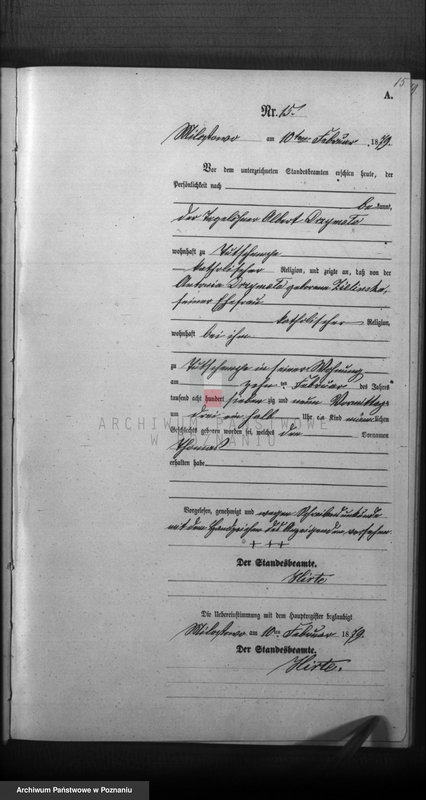 15
A.
Nr. 15.
Milostowo am 10ten Februar 1879.
Vor dem unterzeichneten Standesbeamten erschien heute, der
Persönlichkeit nach
be kannt,
der Tagelöhner Albert
wohnhaft zu
katholischer Religion, und zeigte an, daß von der
Antonia geborene
seiner Ehefrau
katholischer Religion,
wohnhaft bei ihm
zu in seiner Wohnung
am zehn ten Februar des Jahres
tausend acht hundert sieben zig und neun Vormittags
um drei ein halb Uhr ein Kind männ lichen
Geschlechts geboren worden sei, welches den Vornamen
Thomas
erhalten habe.
Vorgelesen, genehmigt und wegen Schreibensunkunde
mit dem Handzeichen des Anzeigenden versehen
+ + +
Der Standesbeamte.
Hirte
Die Uebereinstimmung mit dem Hauptregister beglaubigt
Milostowo am 10ten Februar 1879.
Der Standesbeamte.
Hirte.
ARCHIWUM PAŃSTWOWE
W POZNANIU
Archiwum Państwowe w Poznaniu